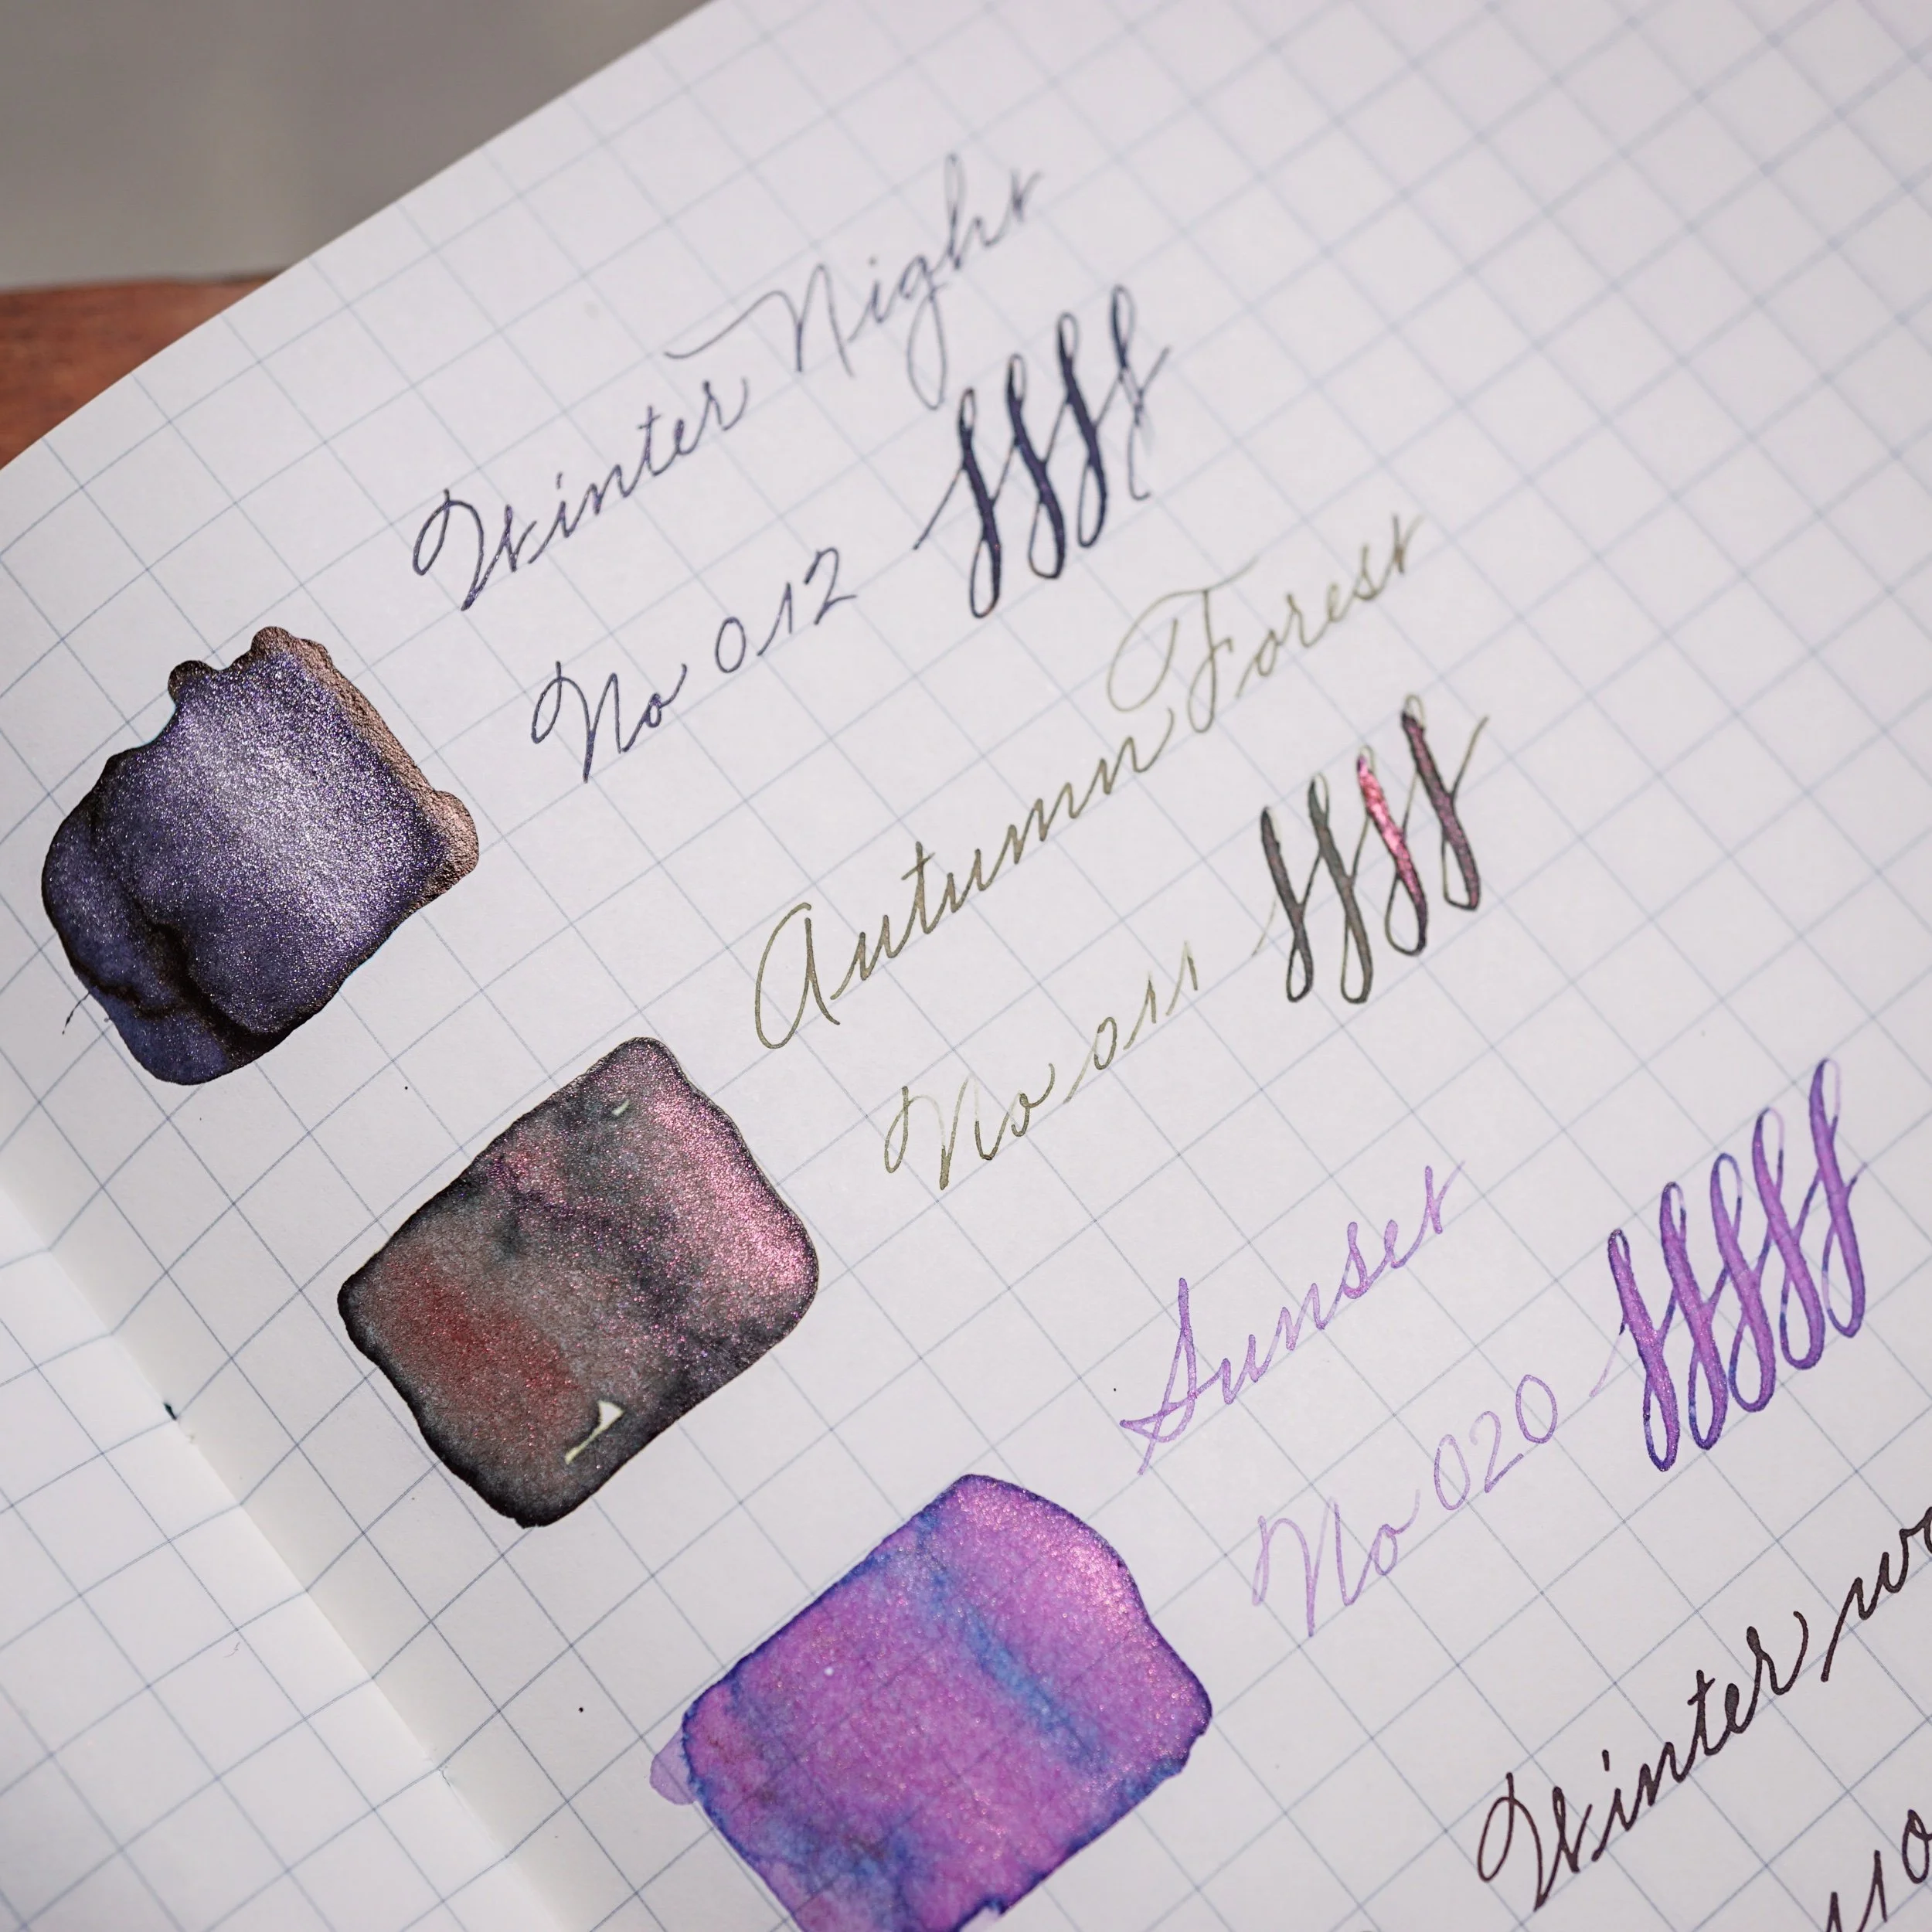 Winter Night
No 012
Autumn Forest
No 011
Sunset
No 020
Winter